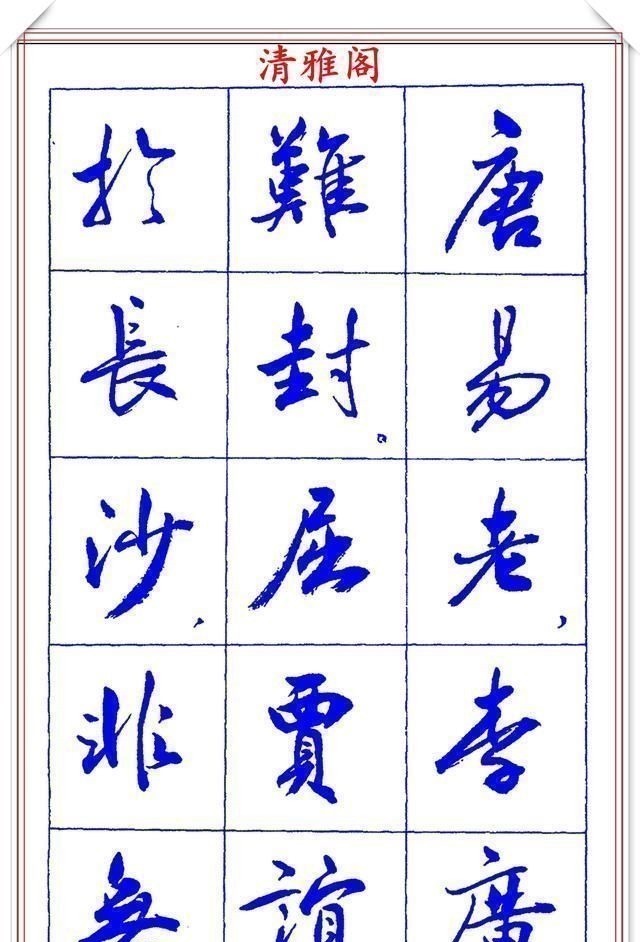 清雅阁
唐易老,李廣
難封。屈賈誼
於長沙,非無